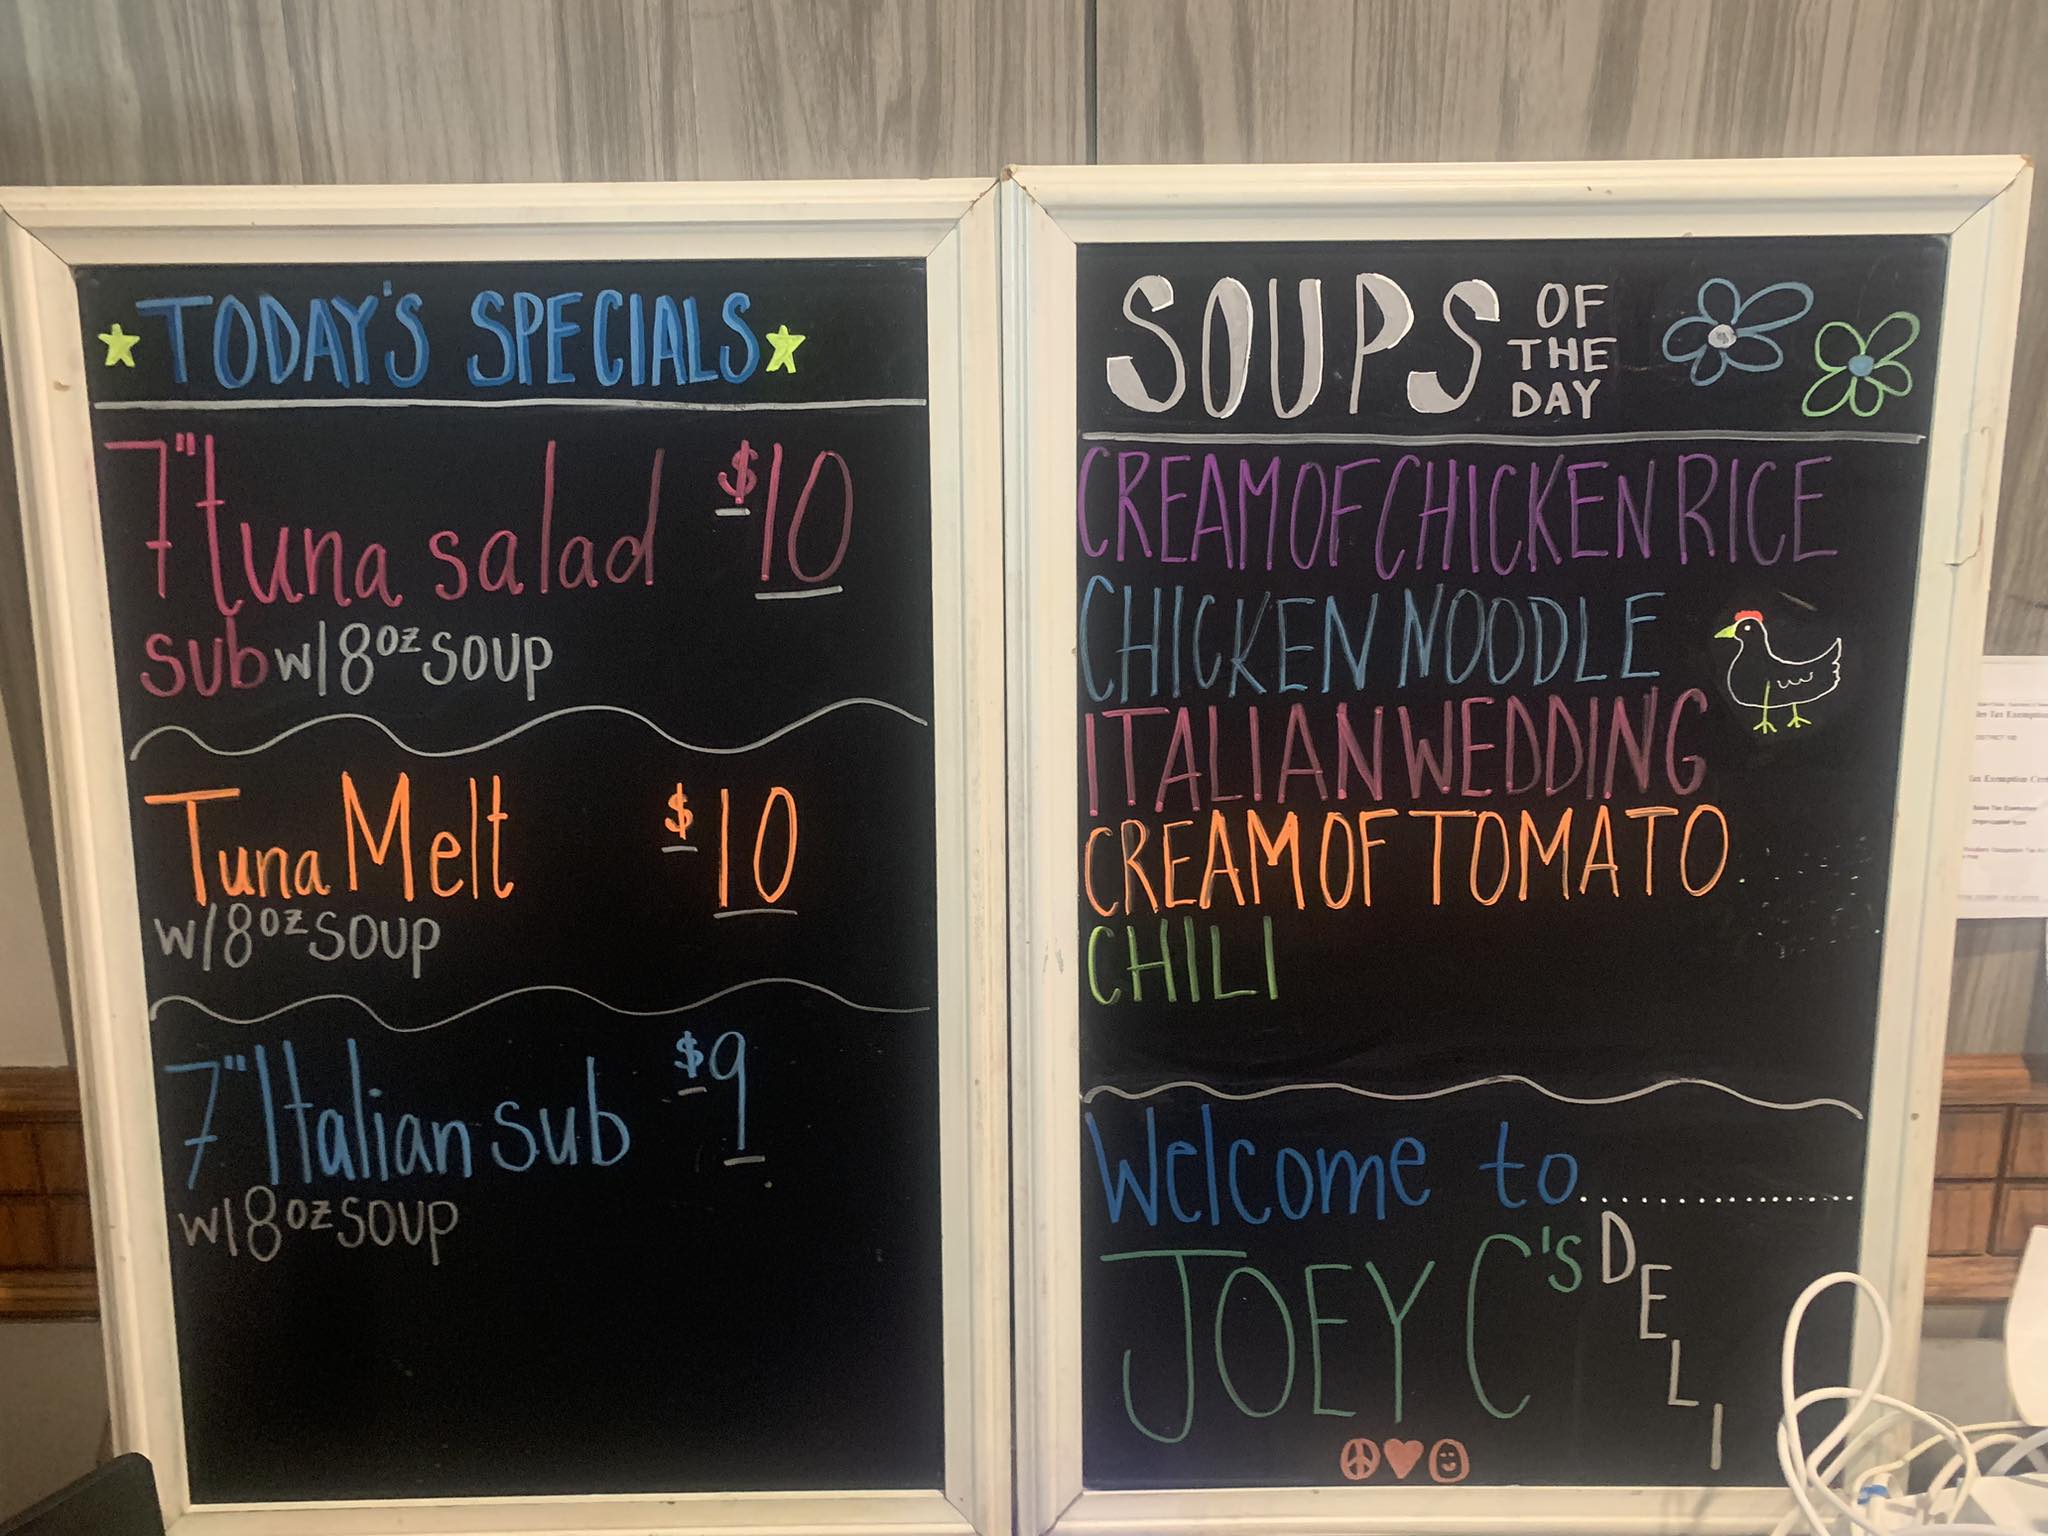 TODAY'S SPECIALS
7" tuna salad $10
sub w/ 8oz soup
Tuna Melt $10
w/ 8oz soup
7" Italian sub $9
w/ 8oz soup
SOUPS OF THE DAY
CREAM OF CHICKEN RICE
CHICKEN NOODLE
ITALIAN WEDDING
CREAM OF TOMATO
CHILI
Welcome to..................
JOEY C's DELI
Tax Exemption
DISTRICT
Tax Exemption